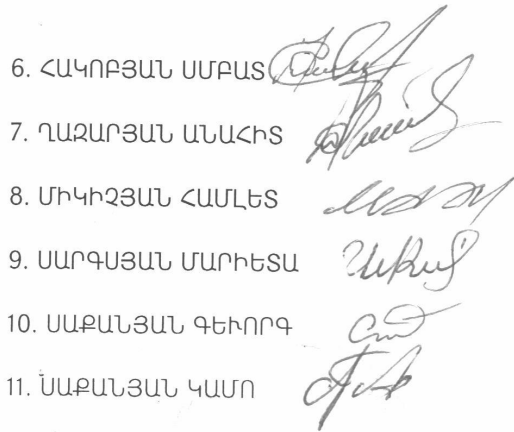 6. ՀԱԿՈԲՅԱՆ ՍՄԲԱՏ
7. ՂԱԶԱՐՅԱՆ ԱՆԱՀԻՏ
8. ՄԻԿԻՉՅԱՆ ՀԱՄԼԵՏ
9. ՍԱՐԳՍՅԱՆ ՄԱՐԻԵՏԱ
10. ՍԱՔԱՆՅԱՆ ԳԵՒՈՐԳ
11. ՍԱՔԱՆՅԱՆ ԿԱՄՈ